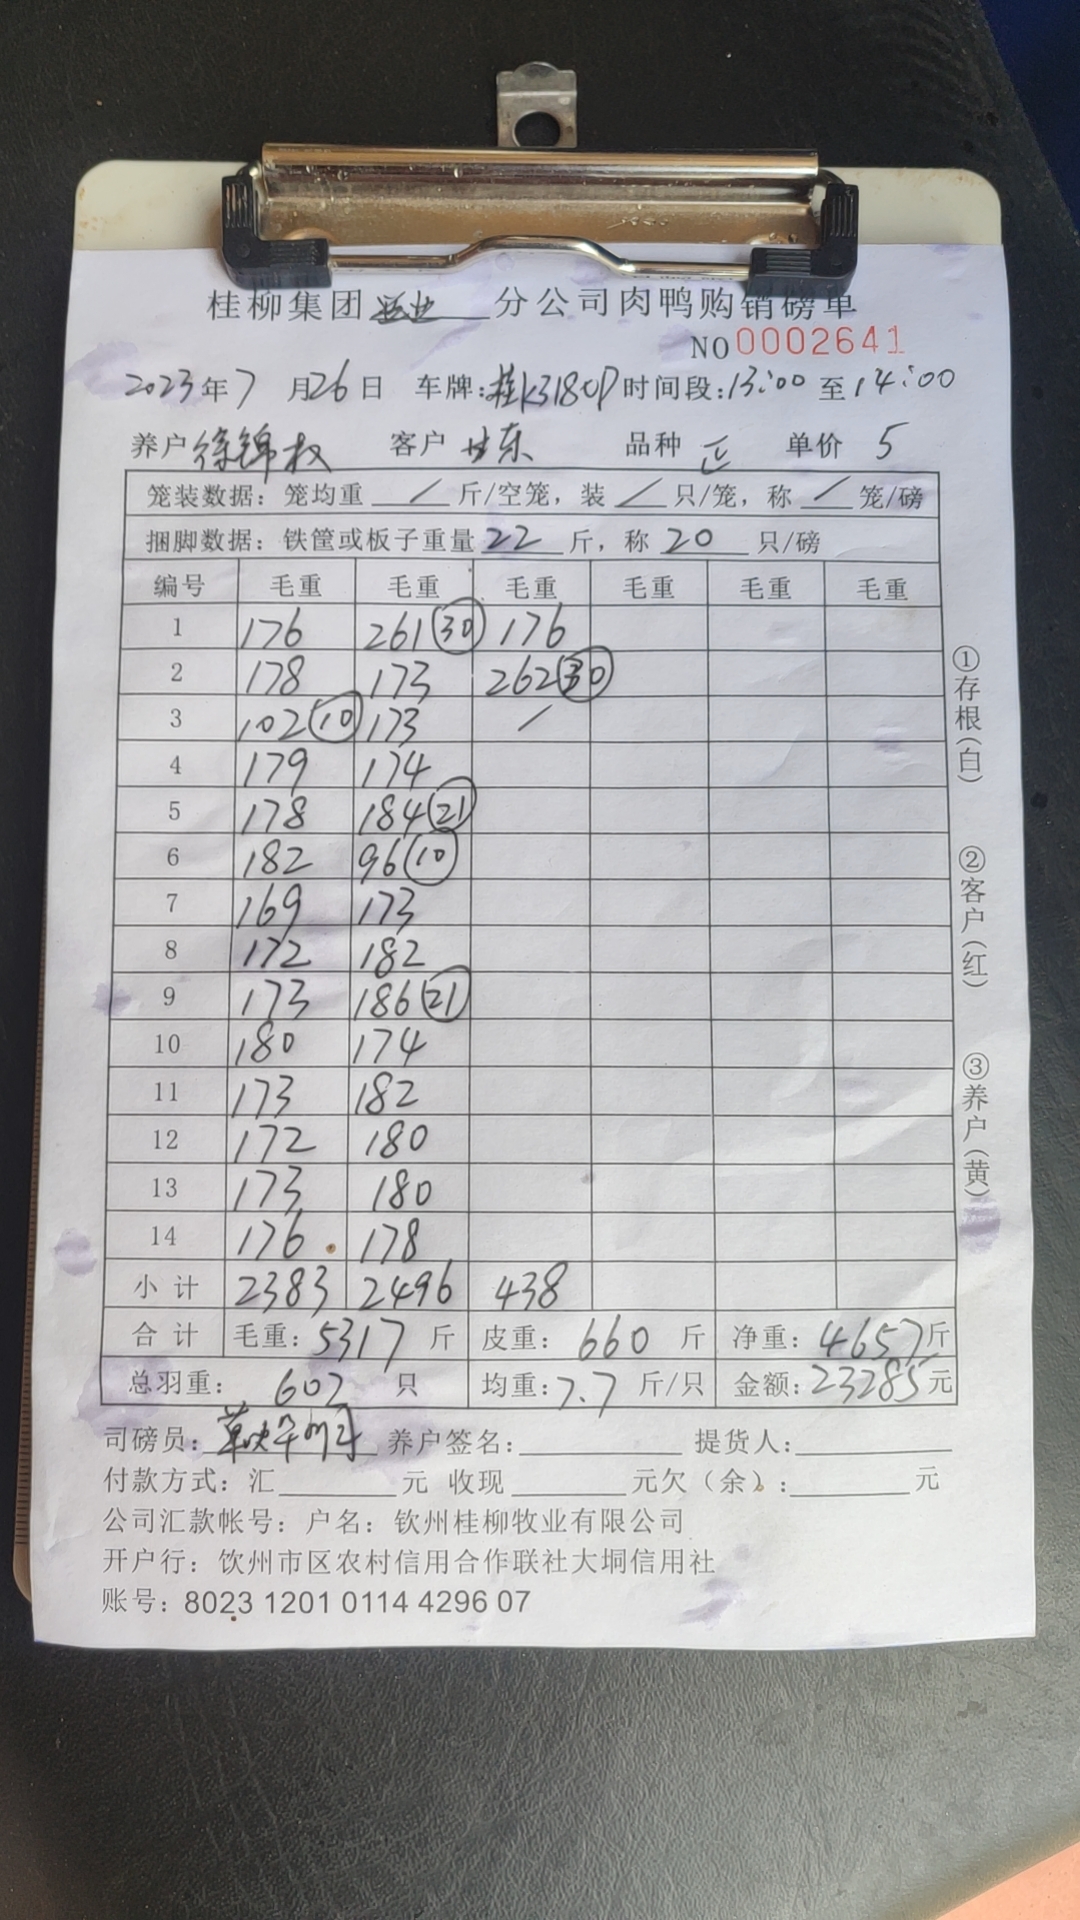 桂柳集团 分公司肉鸭购销磅单
NO 0002641
2023年7月26日 车牌:桂K3180P 时间段:13:00至14:00
养户 徐锦权 客户 甘东 品种 正 单价 5
笼装数据: 笼均重 / 斤/空笼, 装 / 只/笼, 称 / 笼/磅
捆脚数据: 铁筐或板子重量 22 斤, 称 20 只/磅
编号 毛重 毛重 毛重 毛重 毛重 毛重
1 176 261(30) 176
2 178 173 262(30)
3 102(10) 173 /
4 179 174
5 178 184(21)
6 182 96(10)
7 169 173
8 172 182
9 173 186(21)
10 180 174
11 173 182
12 172 180
13 173 180
14 176 178
小计 2383 2496 438
合计 毛重: 5317 斤 皮重: 660 斤 净重: 4657斤
总羽重: 602 只 均重: 7.7 斤/只 金额: 23285元
司磅员: 养户签名: 提货人:
付款方式: 汇 元 收现 元欠(余): 元
公司汇款帐号: 户名: 钦州桂柳牧业有限公司
开户行: 饮州市区农村信用合作联社大垌信用社
账号: 8023 1201 0114 4296 07
①存根(白)
②客户(红)
③养户(黄)